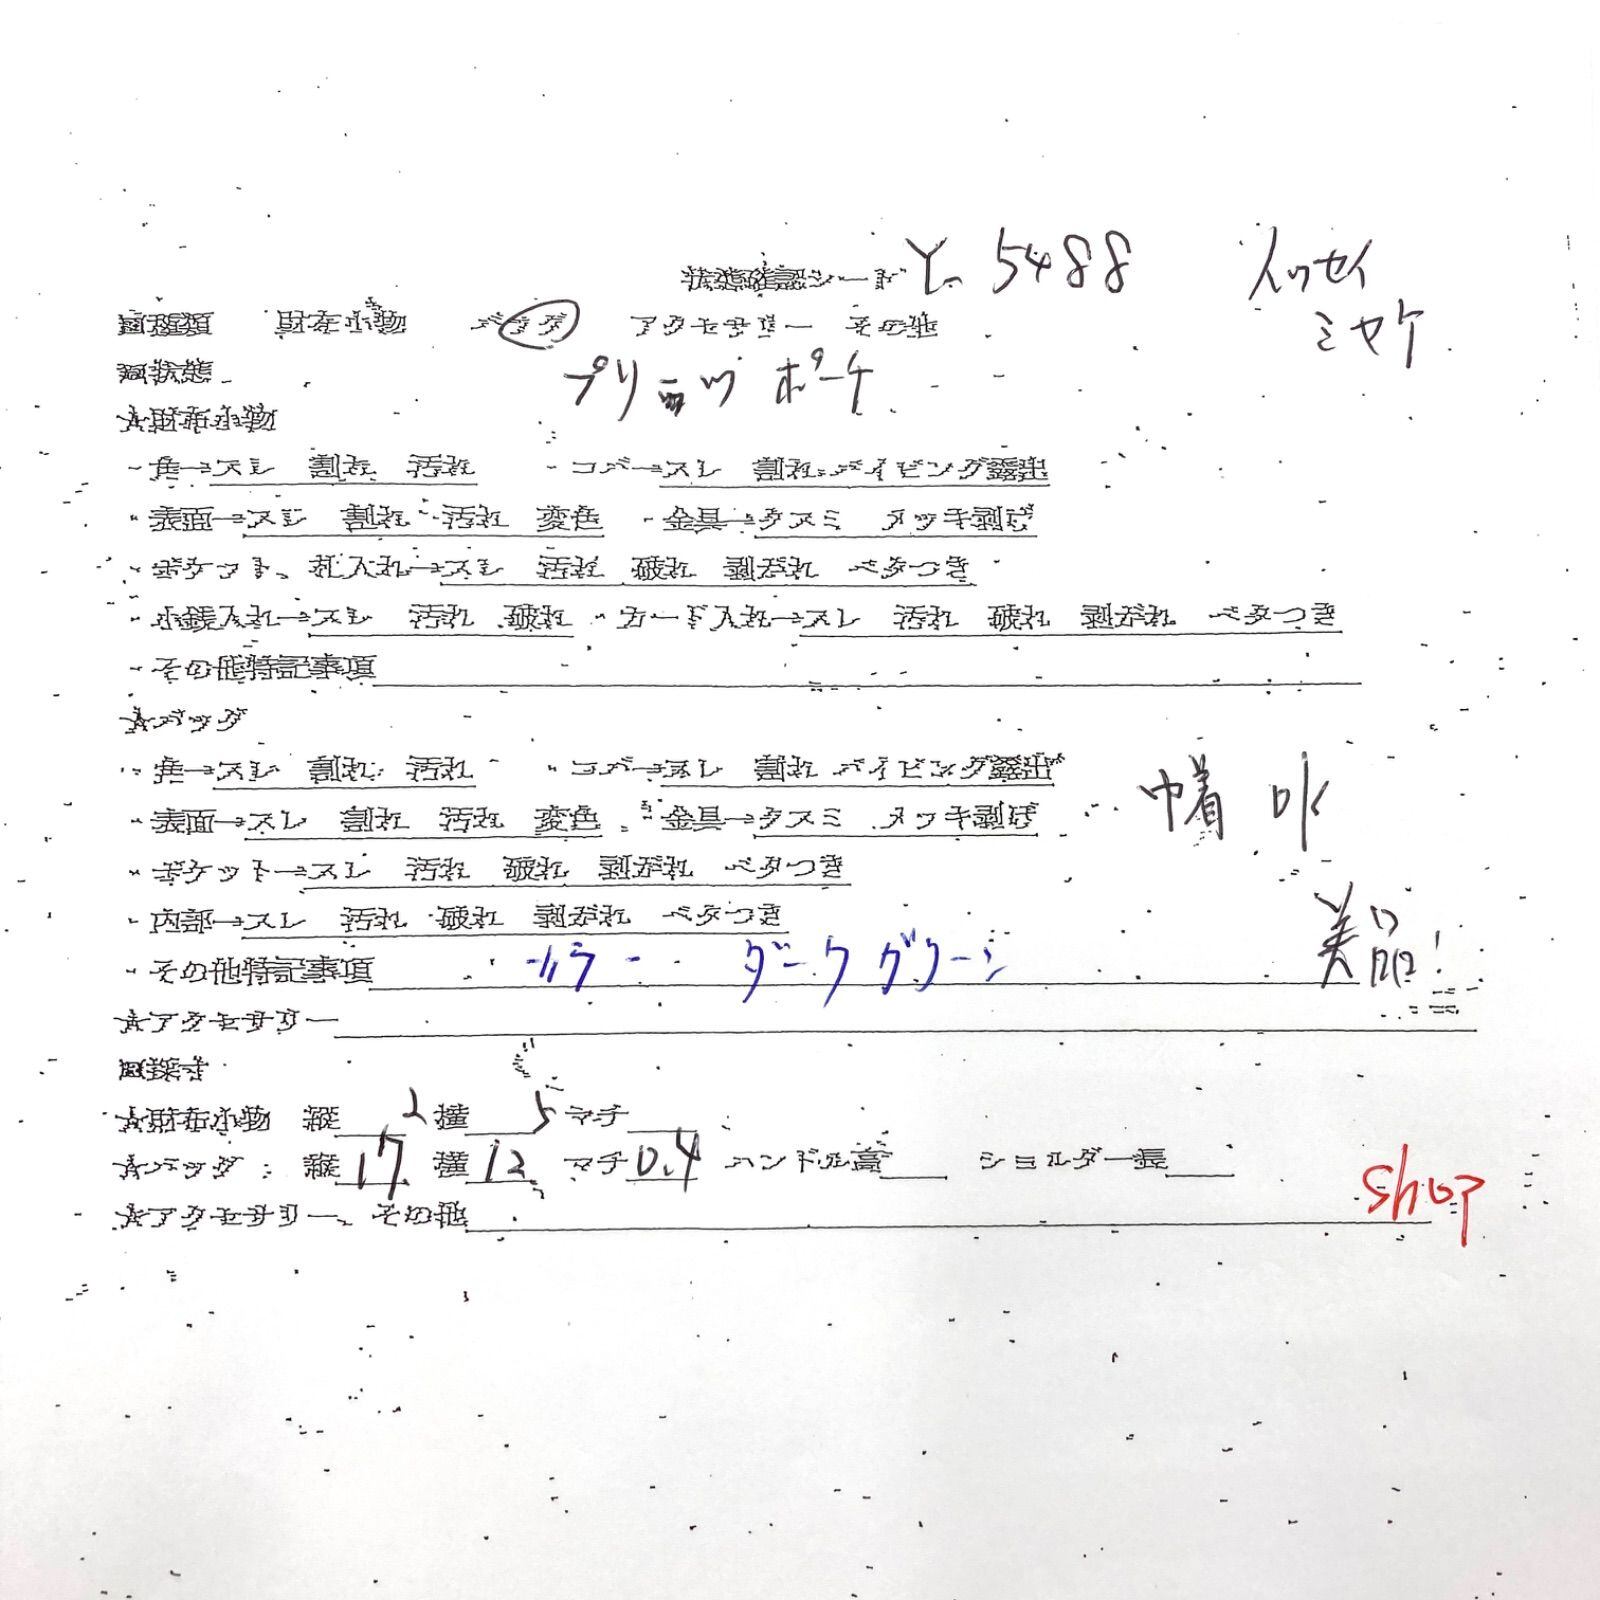 状態確認シート Y-5488 イッセイ
ミヤケ
□種類 財布小物 バッグ アクセサリー その他
□状態 プリーツ ポーチ
★財布小物
・角→スレ 割れ 汚れ ・コバ→スレ 割れ パイピング露出
・表面→スレ 割れ 汚れ 変色 ・金具→クスミ メッキ剥げ
・ポケット、札入れ→スレ 汚れ 破れ 剥がれ ベタつき
・小銭入れ→スレ 汚れ 破れ ・カード入れ→スレ 汚れ 破れ 剥がれ ベタつき
・その他特記事項
★バッグ
・角→スレ 割れ 汚れ ・コバ→スレ 割れ パイピング露出
・表面→スレ 割れ 汚れ 変色 ・金具→クスミ メッキ剥げ 巾着
・ポケット→スレ 汚れ 破れ 剥がれ ベタつき
・内部→スレ 汚れ 破れ 剥がれ ベタつき
・その他特記事項 カラー ダークグリーン 美品!
★アクセサリー
□採寸
★財布小物 縦 2 横 5 マチ
★バッグ:縦 17 横 12 マチ 0.4 ハンドル高 ショルダー長
★アクセサリー、その他 shop